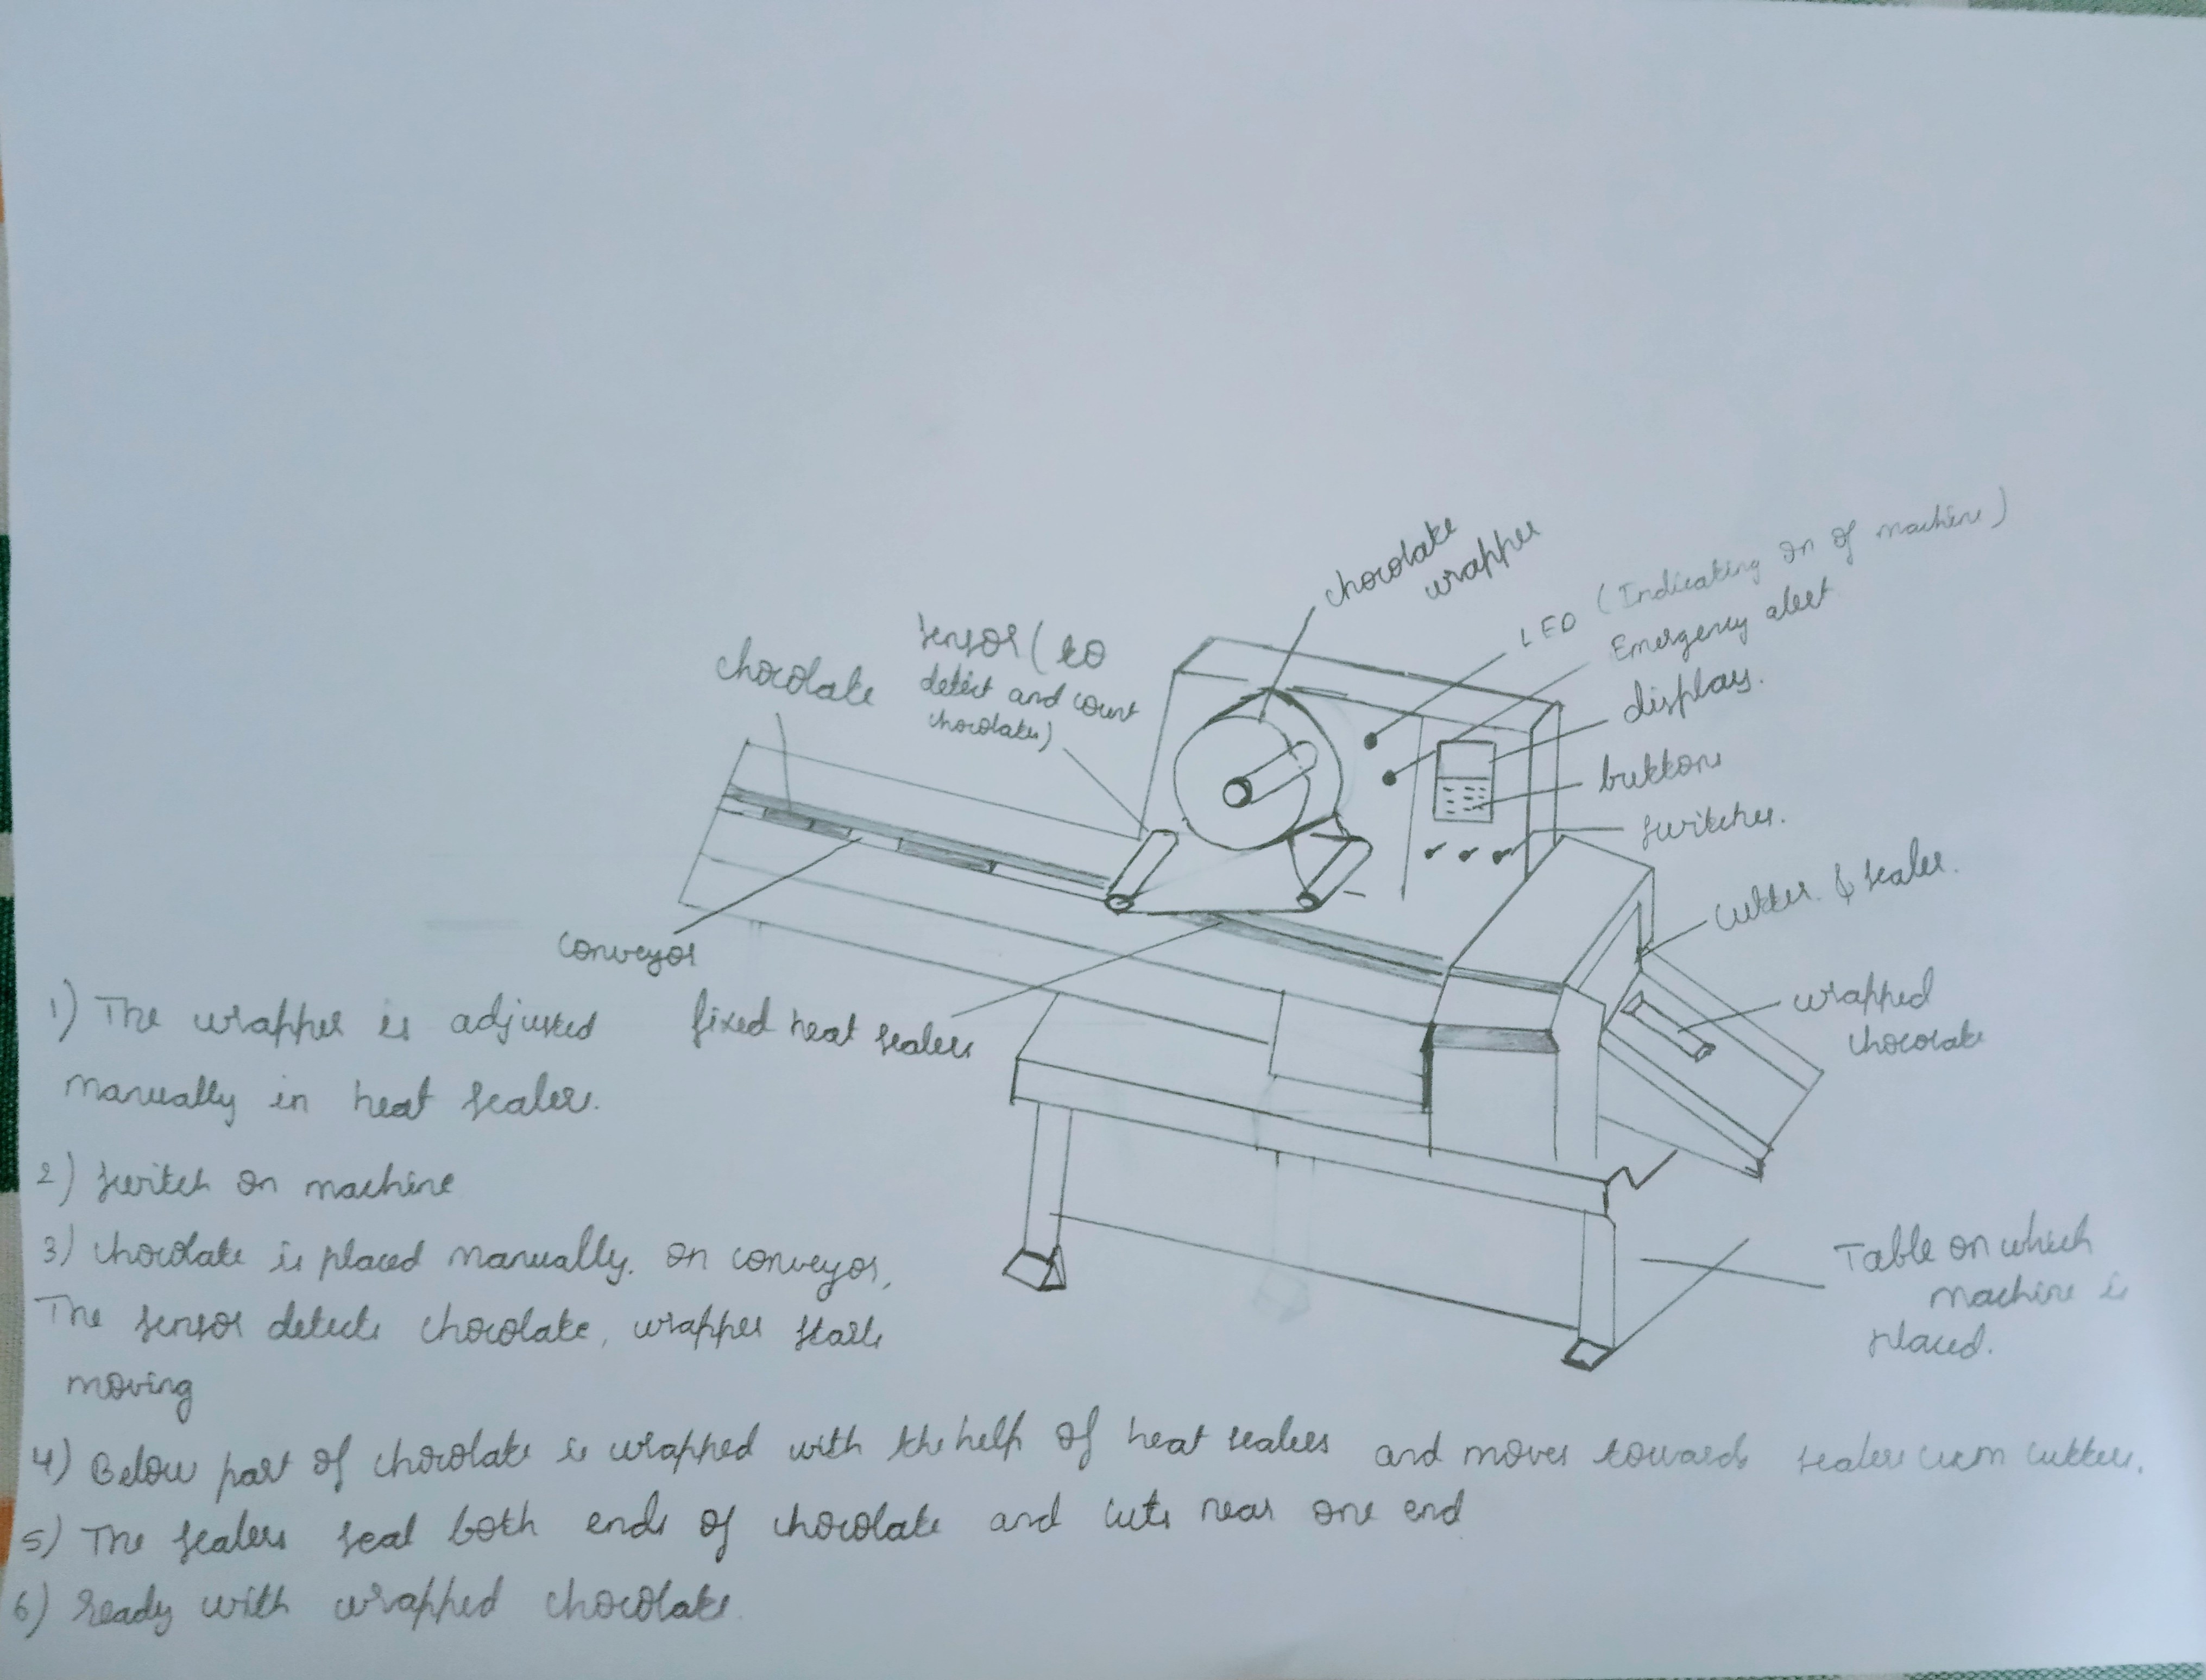 chocolate
wrapper
LED (Indicating on of machine)
Emergency alert
displays.
buttons
switches.
cutter & sealer.
wrapped
chocolate
Sensor (to
detect and count
chocolates)
chocolate
conveyor
fixed heat sealers
Table on which
machine is
placed.
1) The wrapper is adjusted
manually in heat sealer.
2) Switch on machine
3) chocolate is placed manually. on conveyor,
The sensor detects chocolate, wrapper starts
moving
4) Below part of chocolate is wrapped with the help of heat sealers and moves towards sealers cum cutters.
5) The sealers seal both ends of chocolate and cuts near one end
6) Ready with wrapped chocolate.